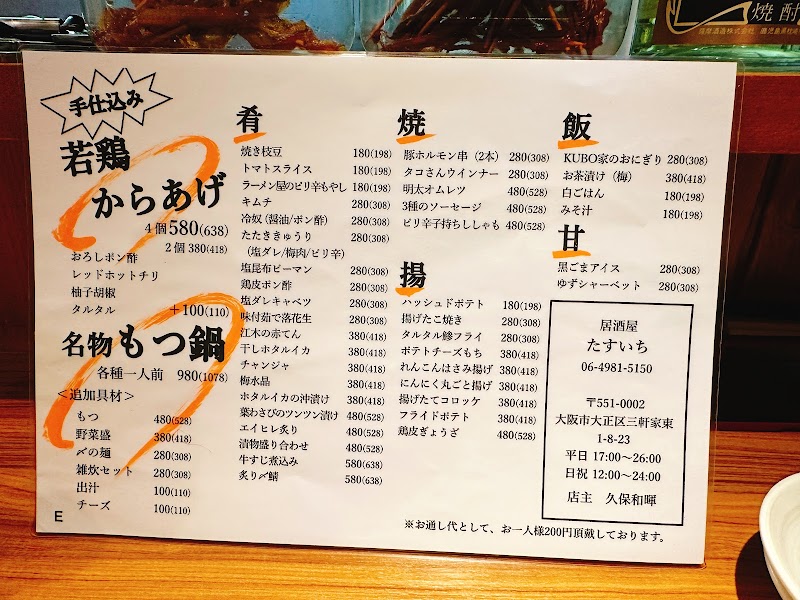 焼酎
手仕込み
若鶏
からあげ
4個580(638)
2個 380(418)
おろしポン酢
レッドホットチリ
柚子胡椒
タルタル +100(110)
名物もつ鍋
各種一人前 980(1078)
<追加具材>
もつ 480(528)
野菜盛 380(418)
〆の麺 280(308)
雑炊セット 280(308)
出汁 100(110)
チーズ 100(110)
E
肴
焼き枝豆 180(198)
トマトスライス 180(198)
ラーメン屋のピリ辛もやし 180(198)
キムチ 280(308)
冷奴(醤油/ポン酢) 280(308)
たたききゅうり 280(308)
(塩ダレ/梅肉/ピリ辛)
塩昆布ピーマン 280(308)
鶏皮ポン酢 280(308)
塩ダレキャベツ 280(308)
味付茹で落花生 280(308)
江木の赤てん 380(418)
干しホタルイカ 380(418)
チャンジャ 380(418)
梅水晶 380(418)
ホタルイカの沖漬け 380(418)
葉わさびのツンツン漬け 480(528)
エイヒレ炙り 480(528)
漬物盛り合わせ 480(528)
牛すじ煮込み 580(638)
炙り〆鯖 580(638)
焼
豚ホルモン串(2本) 280(308)
タコさんウインナー 280(308)
明太オムレツ 480(528)
3種のソーセージ 480(528)
ピリ辛子持ちししゃも 480(528)
揚
ハッシュドポテト 180(198)
揚げたこ焼き 280(308)
タルタル鯵フライ 280(308)
ポテトチーズもち 380(418)
れんこんはさみ揚げ 380(418)
にんにく丸ごと揚げ 380(418)
揚げたてコロッケ 380(418)
フライドポテト 380(418)
鶏皮ぎょうざ 480(528)
飯
KUBO家のおにぎり 280(308)
お茶漬け(梅) 380(418)
白ごはん 180(198)
みそ汁 180(198)
甘
黒ごまアイス 280(308)
ゆずシャーベット 280(308)
居酒屋
たすいち
06-4981-5150
〒551-0002
大阪市大正区三軒家東
1-8-23
平日 17:00～26:00
日祝 12:00～24:00
店主 久保和暉
※お通し代として、お一人様200円頂戴しております。